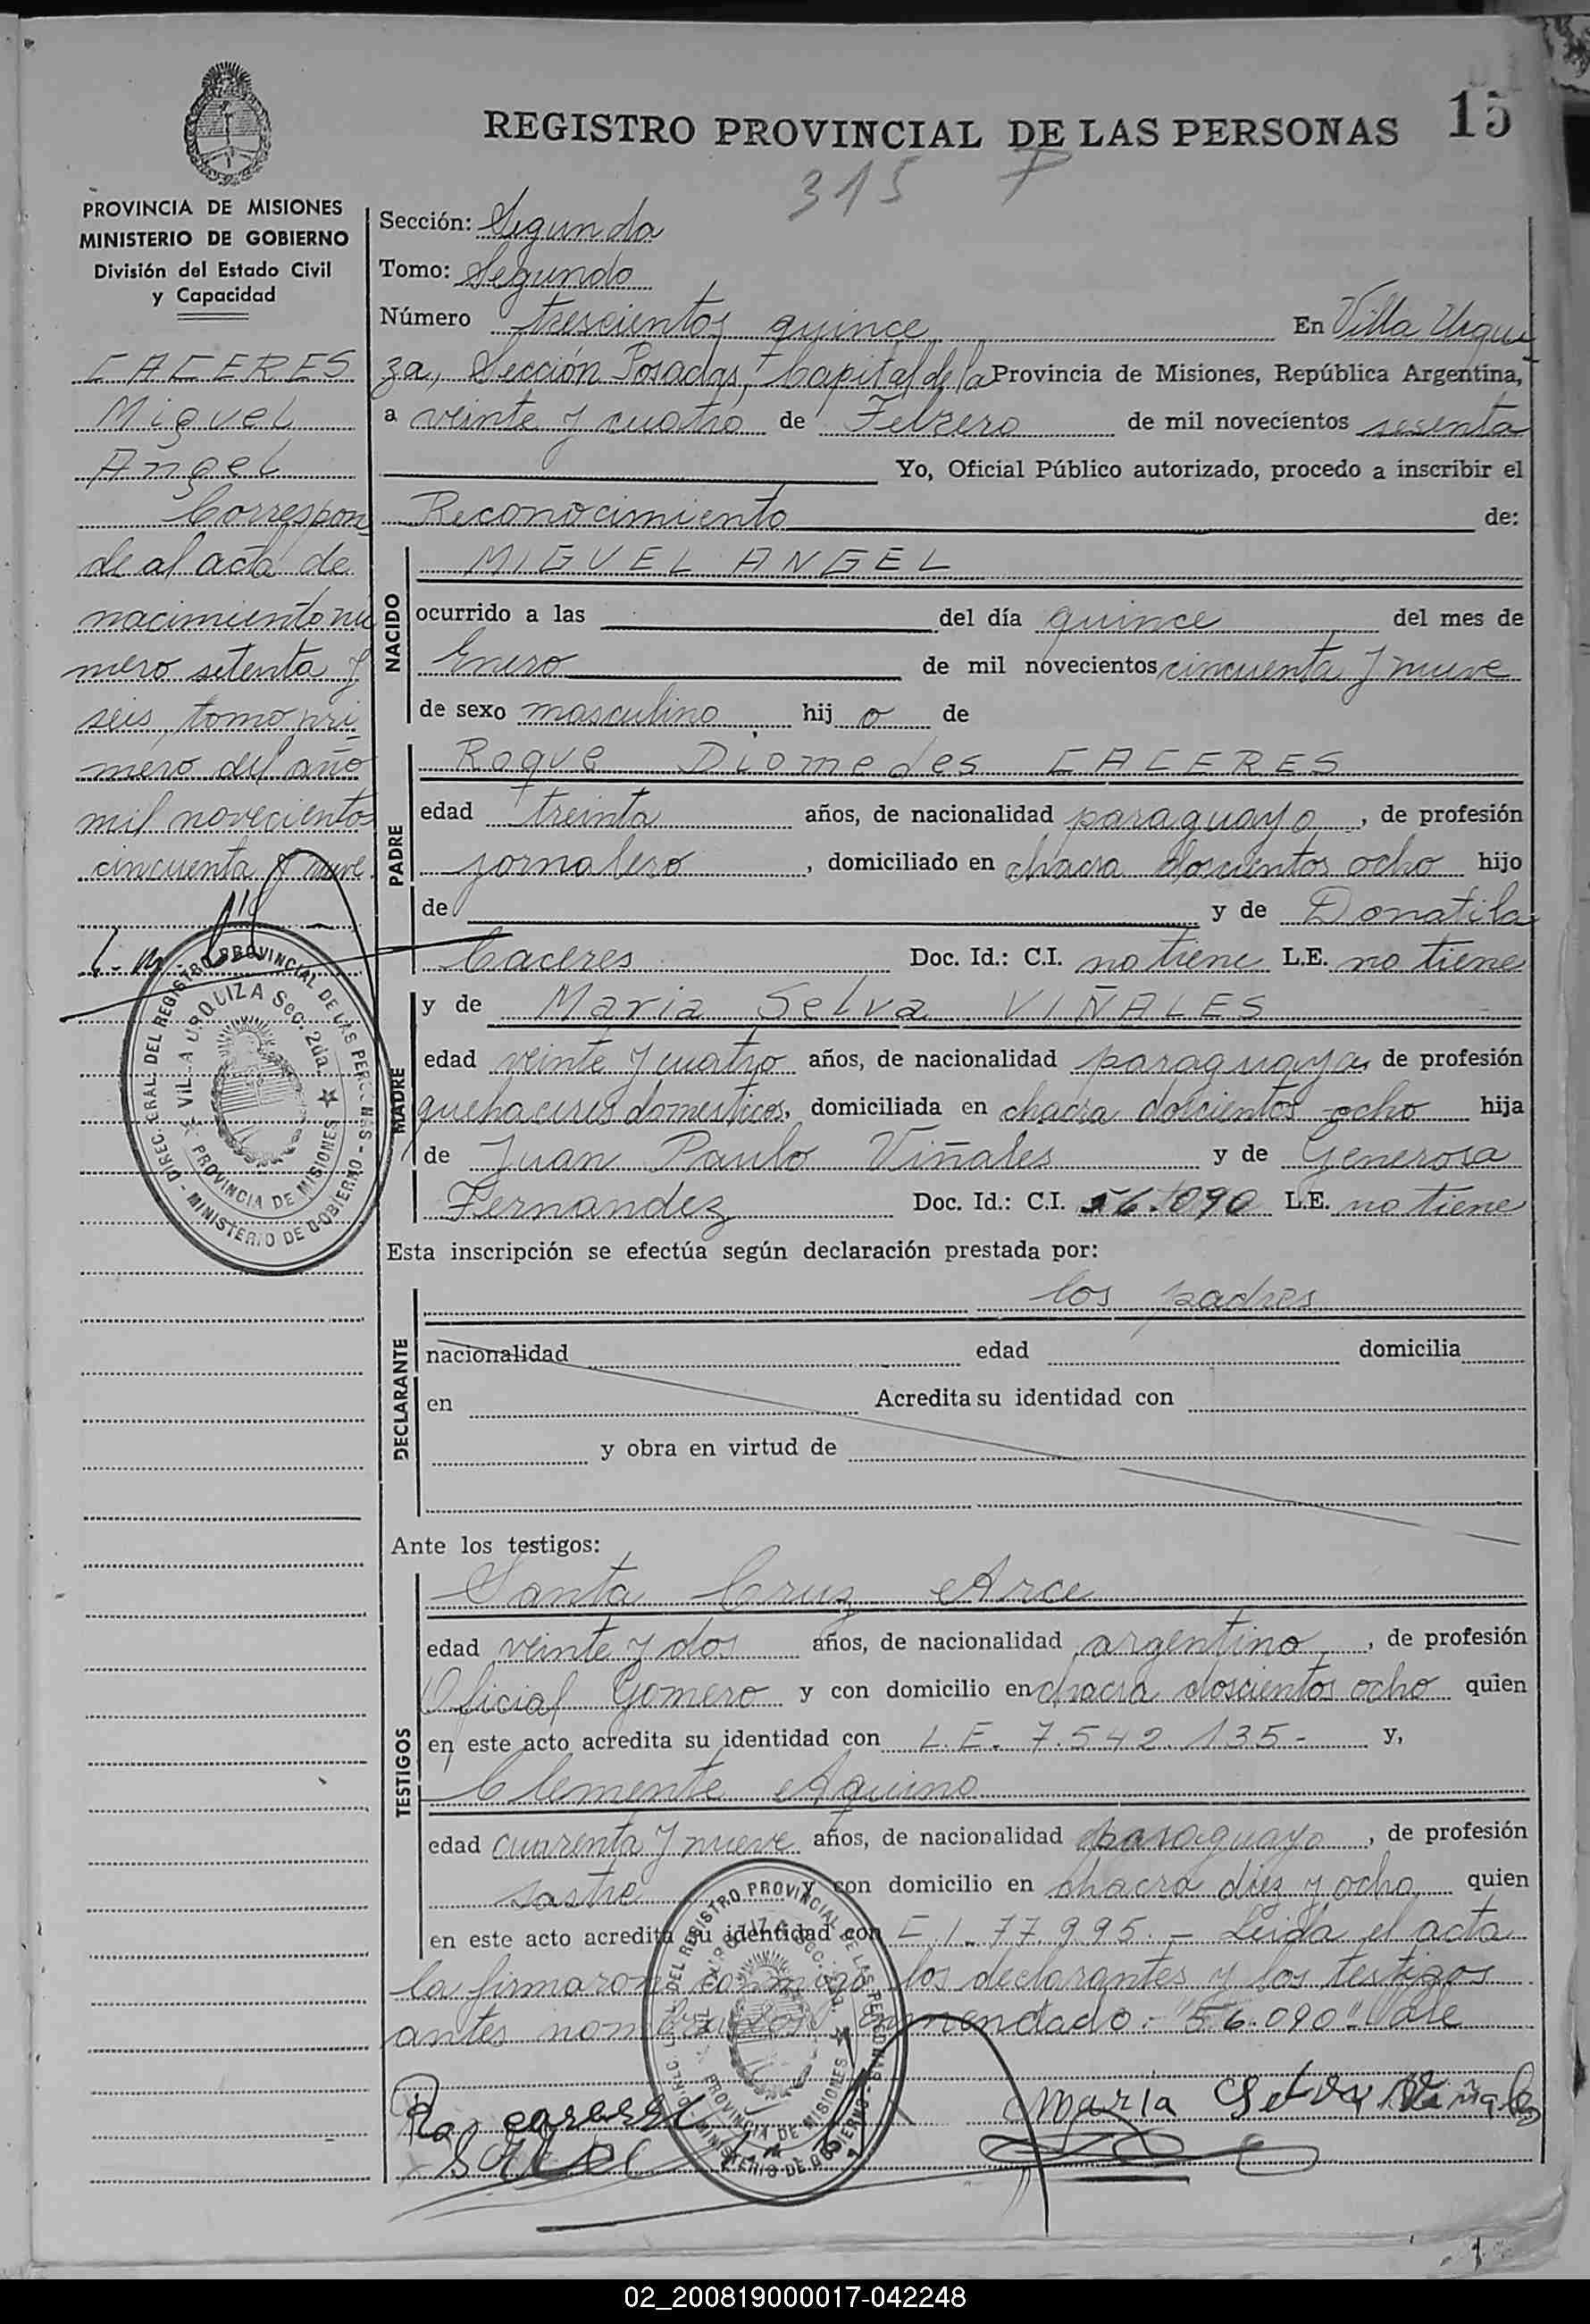 REGISTRO PROVINCIAL DE LAS PERSONAS 15
315
PROVINCIA DE MISIONES
MINISTERIO DE GOBIERNO
División del Estado Civil
y Capacidad
CACERES
Miguel
Angel
Correspon
de al acta de
nacimiento nu
mero setenta y
seis, tomo pri
mero del año
mil novecientos
cincuenta y nueve.
DIREC. GRAL. DEL REGISTRO PROVINCIAL DE LAS PERSONAS - MINISTERIO DE GOBIERNO -
VILLA URQUIZA Sec. 2da.
PROVINCIA DE MISIONES
Sección: Segunda
Tomo: Segundo
Número trescientos quince En Villa Urqui
za, Sección Posadas, Capital de la Provincia de Misiones, República Argentina,
a veinte y cuatro de Febrero de mil novecientos sesenta
Yo, Oficial Público autorizado, procedo a inscribir el
Reconocimiento de:
NACIDO
MIGUEL ANGEL
ocurrido a las del día quince del mes de
Enero de mil novecientos cincuenta y nueve
de sexo masculino hij o de
PADRE
Roque Diomedes CACERES
edad treinta años, de nacionalidad paraguayo, de profesión
jornalero, domiciliado en chacra doscientos ocho hijo
de y de Donatila
Caceres Doc. Id.: C.I. no tiene L.E. no tiene
MADRE
y de Maria Selva VIÑALES
edad veinte y cuatro años, de nacionalidad paraguaya de profesión
quehaceres domesticos, domiciliada en chacra doscientos ocho hija
de Juan Paulo Viñales y de Generosa
Fernandez Doc. Id.: C.I. 56.090 L.E. no tiene
Esta inscripción se efectúa según declaración prestada por:
DECLARANTE
los padres
nacionalidad edad domicilia
en Acredita su identidad con
y obra en virtud de
Ante los testigos:
TESTIGOS
Santa Cruz Arce
edad veinte y dos años, de nacionalidad argentino, de profesión
Oficial Gomero y con domicilio en chacra doscientos ocho quien
en este acto acredita su identidad con L.E. 7.542.135- y,
Clemente Aquino
edad cuarenta y nueve años, de nacionalidad paraguayo, de profesión
sastre y con domicilio en chacra diez y ocho quien
en este acto acredita su identidad con C.I. 77.995.- Leida el acta
la firmaron conmigo los declarantes y los testigos
antes nombrados enmendado:- "56.090" Vale
DIREC. GRAL. DEL REGISTRO PROVINCIAL DE LAS PERSONAS - MINISTERIO DE GOBIERNO -
PROVINCIA DE MISIONES
Maria Selva Viñales
02_200819000017-042248